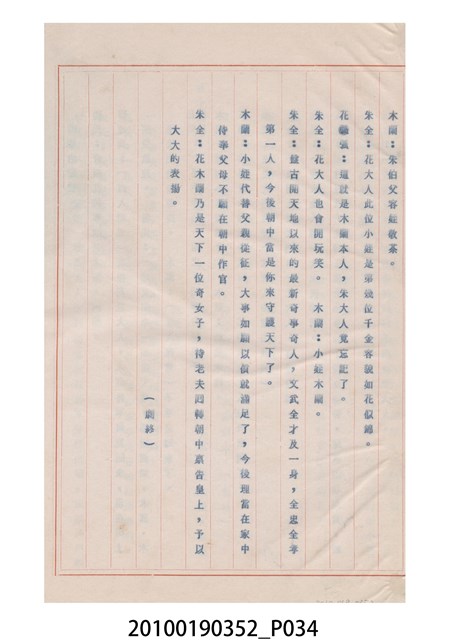 木蘭：朱伯父容姪敬茶。
朱全：花大人此位小姐是第幾位千金容貌如花似錦。
花　　：這就是木蘭本人，朱大人竟忘記了。
朱全：花大人也會開玩笑。　木蘭：小姪木蘭。
朱全：盤古開天地以來的最新奇事奇人，文武全才及一身，全忠全孝
第一人，今後朝中當是你來守護天下了。
木蘭：小姪代替父親從征，大事如願以償就滿足了，今後理當在家中
侍奉父母不願在朝中作官。
朱全：花木蘭乃是天下一位奇女子，待老夫回轉朝中稟告皇上，予以
大大的表揚。
（劇終）
20100190352_P034